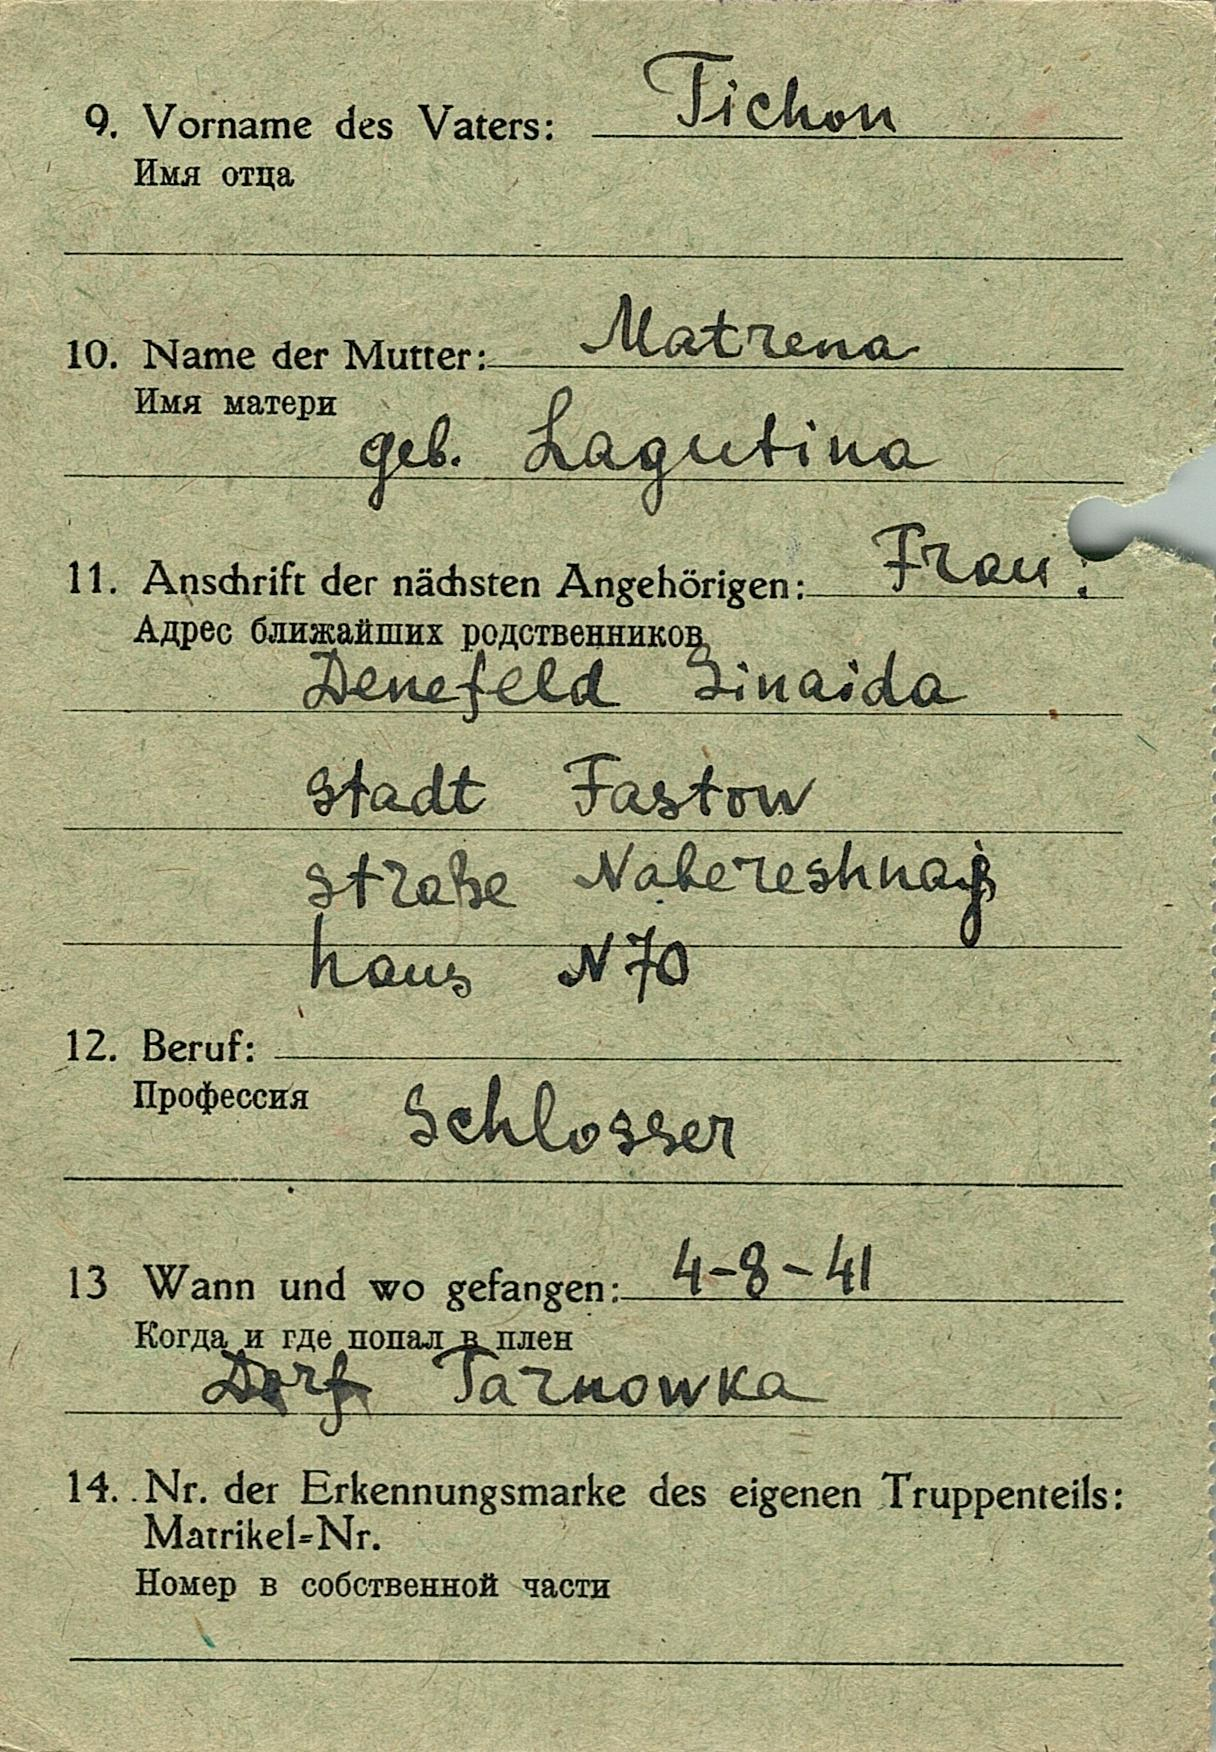 9. Vorname des Vaters: Tichon
Имя отца
10. Name der Mutter: Matrena
Имя матери
geb. Lagutina
11. Anschrift der nächsten Angehörigen: Frau:
Адрес ближайших родственников
Denefeld Sinaida
Stadt Fastow
Straße Nabereshnaja
haus N 70
12. Beruf:
Профессия
Schlosser
13 Wann und wo gefangen: 4-8-41
Когда и где попал в плен
Dorf Tarnowka
14. Nr. der Erkennungsmarke des eigenen Truppenteils:
Matrikel-Nr.
Номер в собственной части